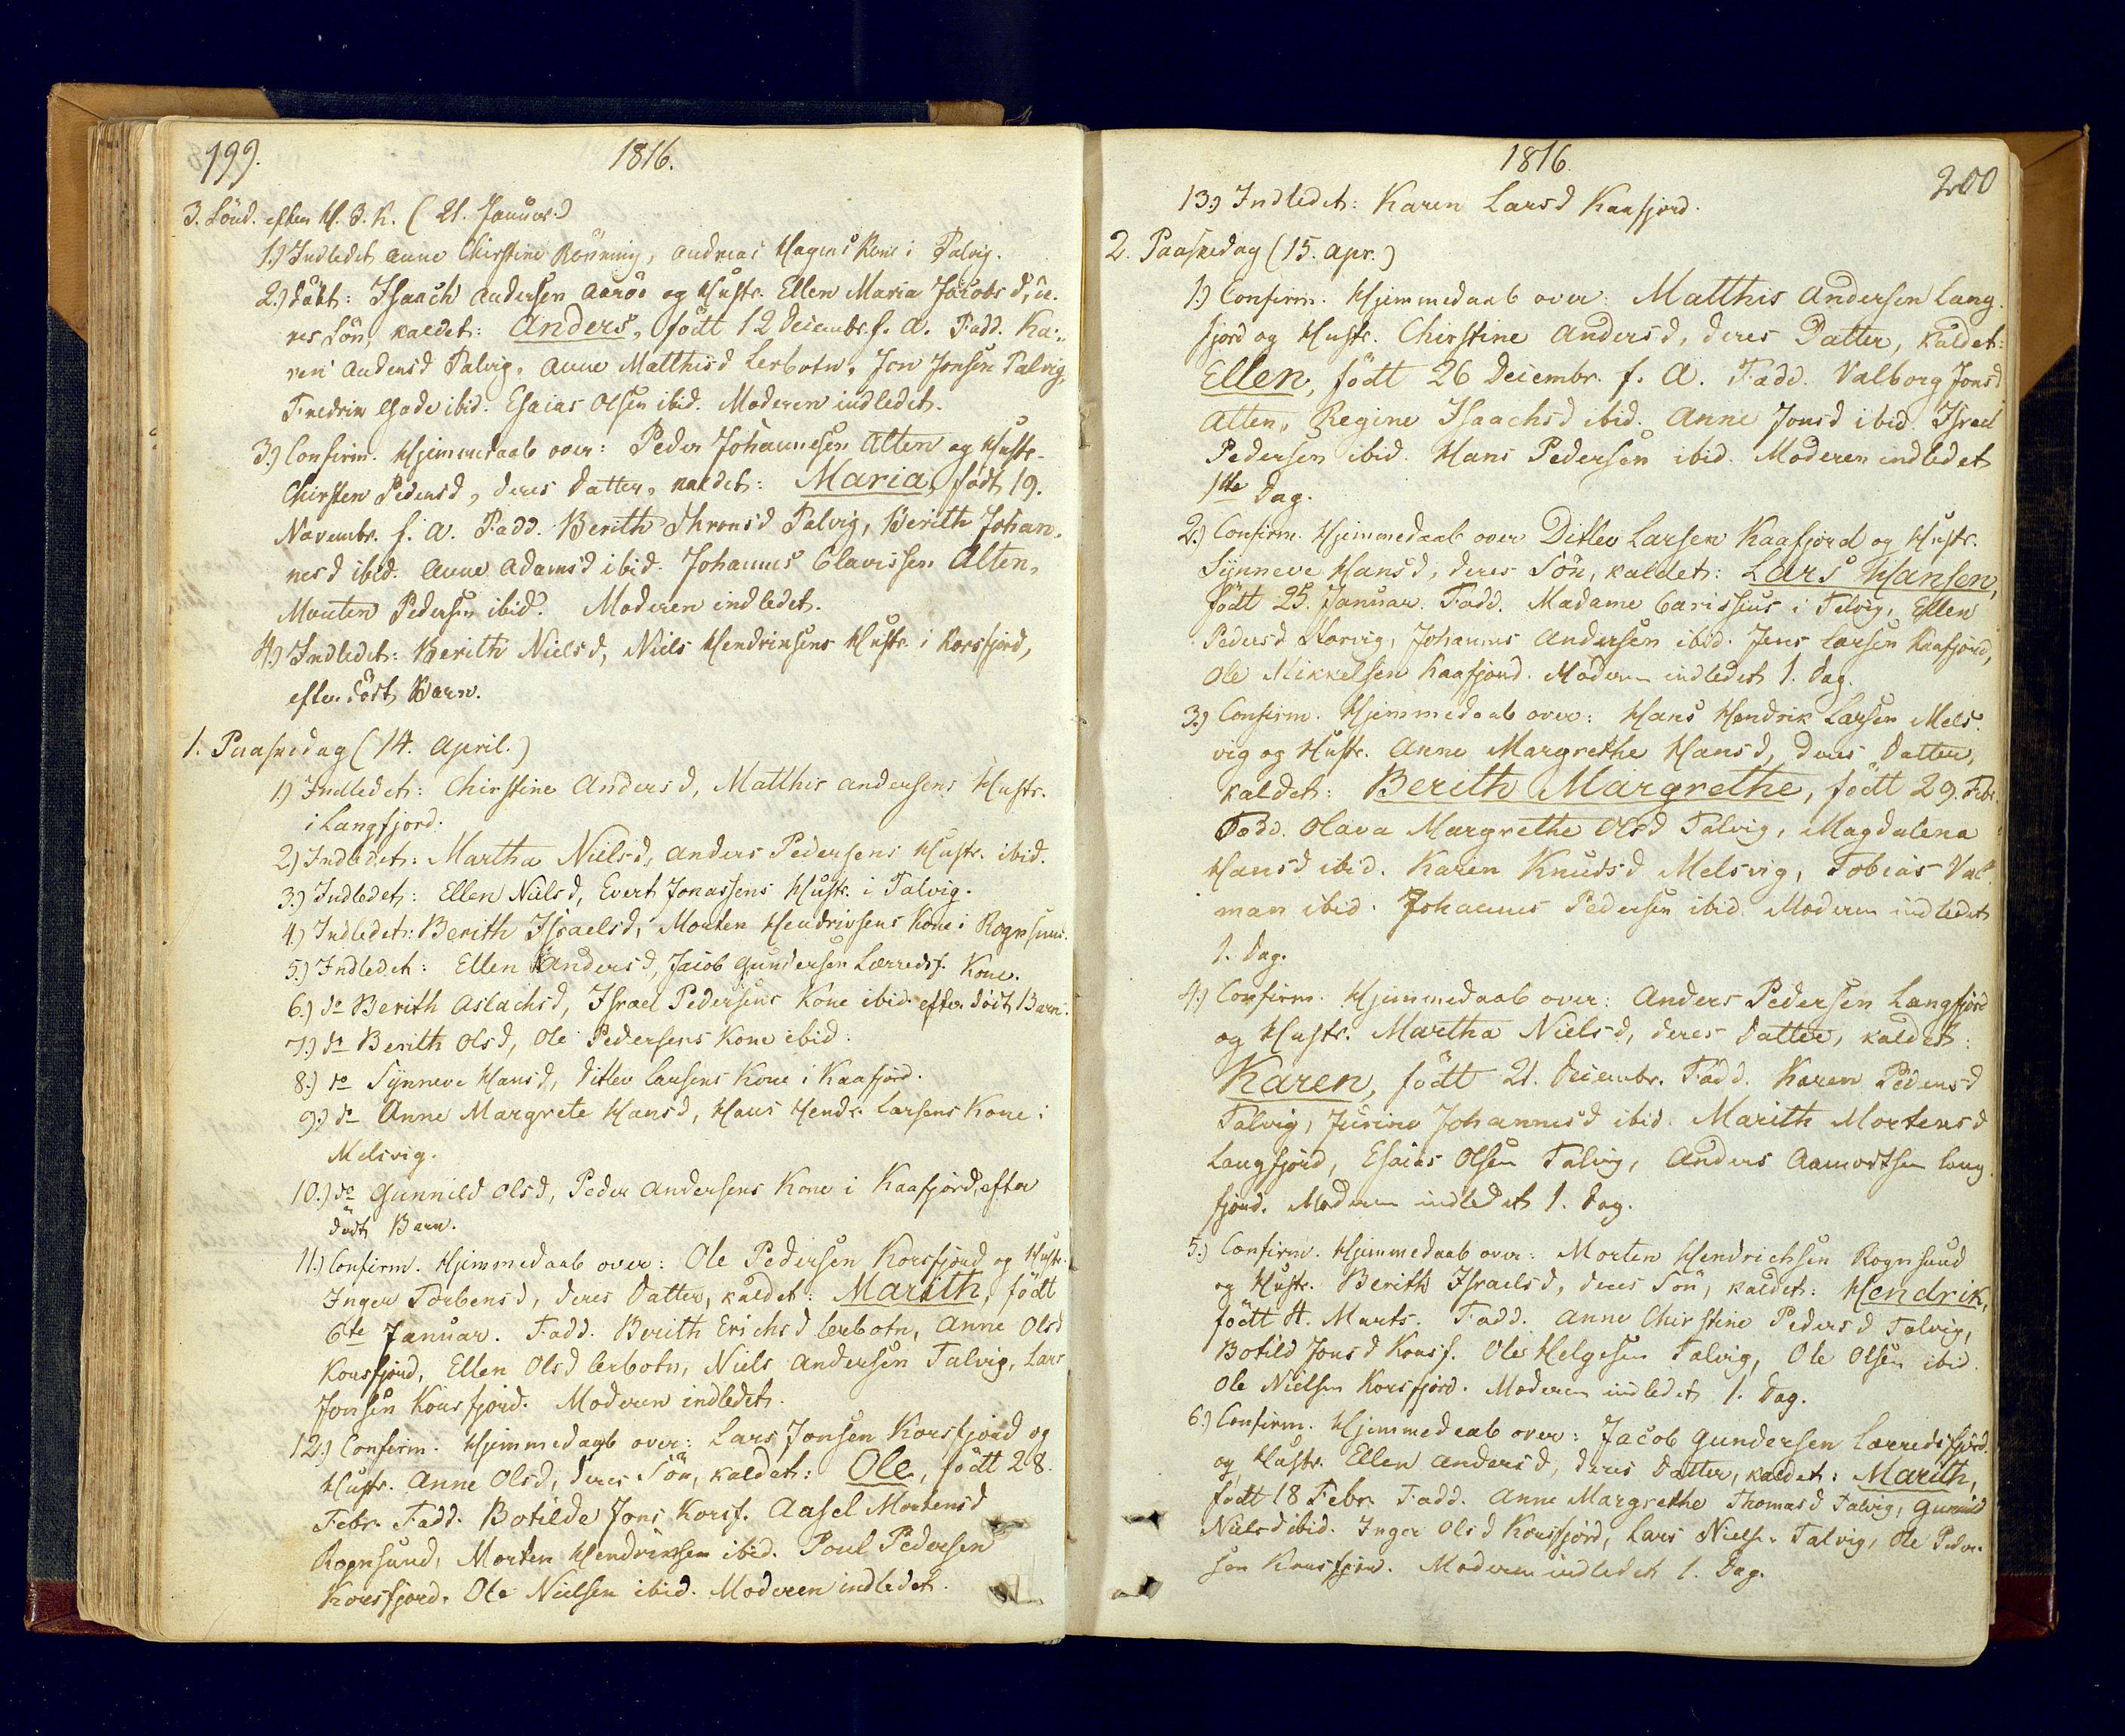 199.
1816.
3. Sönd. efter H. 3. K. (21. Januar.)
1.) Indledet Anne Chirstine Rönning, Andreas Hagens Kone i Talvig.
2.) Döbt: Isaach Andersen Aaröe og Hustr. Ellen Maria Jacobsd, de-
res Sön, kaldet: Anders, födt 12 Decembr. f. A. Fadd. Ka-
ren Andersd Talvig, Anne Matthisd Lerbotn, Jon Jonsen Talvig,
Fredrik Gade ibid. Esaias Olsen ibid. Moderen indledet.
3.) Confirm. Hjemmedaab over: Peder Johannesen Alten og Hustr.
Chirsten Pedersd, deres Datter, kaldet: Maria, födt 19.
Novembr. f. A. Fadd. Berith Thronsd Talvig, Berith Johan-
nesd ibid. Anne Adamsd ibid. Johannes Clavissen Alten,
Morten Pedersen ibid. Moderen indledet.
4.) Indledet: Berith Nielsd, Niels Hendriksens Hustr. i Korsfjord,
efter dödt Barn.
1. Paaskedag (14. April.)
1.) Indledet: Chirstine Andersd, Matthis Andersens Hustr.
i Langfjord.
2.) Indledet: Martha Nielsd, Anders Pedersens Hustr. ibid.
3.) Indledet: Ellen Nielsd, Evert Jonassens Hustr. i Talvig.
4.) Indledet: Berith Israelsd, Morten Hendriksens Kone i Rognsund.
5.) Indledet: Ellen Andersd, Jacob Gundersen Lerredsf. Kone.
6.) do Berith Aslachsd, Israel Pedersens Kone ibid. efter dödt Barn.
7.) do Berith Olsd, Ole Pedersens Kone ibid.
8.) do Synneve Hansd, Ditlev Larsens Kone i Kaafjord.
9.) do Anne Margrete Hansd, Hans Hendr. Larsens Kone i
Melsvig.
10.) do Gunnild Olsd, Peder Andersens Kone i Kaafjord, efter
dödt Barn.
11.) Confirm. Hjemmedaab over: Ole Pedersen Korsfjord og Hustr.
Inger Torbensd, deres Datter, kaldet: Marith, födt
6te Januar. Fadd. Berith Erichsd Lerbotn, Anne Olsd
Korsfjord, Ellen Olsd Lerbotn, Niels Andersen Talvig, Lars
Jonsen Korsfjord. Moderen indledet.
12.) Confirm. Hjemmedaab over: Lars Jonsen Korsfjord og
Hustr. Anne Olsd, deres Sön, kaldet: Ole, födt 28.
Febr. Fadd. Botilde Jons Korsf. Aasel Mortensd
Rognsund, Morten Hendriksen ibid. Poul Pedersen
Korsfjord, Ole Nielsen ibid. Moderen indledet.
1816.
200
13.) Indledet: Karen Larsd Kaafjord.
2. Paaskedag (15. Apr.)
1.) Confirm. Hjemmedaab over: Matthis Andersen Lang-
fjord og Hustr. Chirstine Andersd, deres Datter, kaldet:
Ellen, födt 26 Decembr. f. A. Fadd. Valborg Jonsd
Alten, Regine Isaachsd ibid. Anne Jonsd ibid. Israel
Pedersen ibid. Hans Pedersen ibid. Moderen indledet
1ste Dag.
2.) Confirm. Hjemmedaab over Ditlev Larsen Kaafjord og Hustr.
Synneve Hansd, deres Sön, kaldet: Lars Hansen,
födt 25. Januar. Fadd. Madame Carissius i Talvig, Ellen
Pedersd Storvig, Johannes Andersen ibid. Jens Larsen Kaafjord,
Ole Mikkelsen Kaafjord. Moderen indledet 1. Dag.
3.) Confirm. Hjemmedaab over: Hans Hendrik Larsen Mels-
vig og Hustr. Anne Margrethe Hansd, deres Datter,
kaldet: Berith Margrethe, födt 29. Febr.
Fadd. Olava Margrethe Olsd Talvig, Magdalena
Hansd ibid. Karen Knudsd Melsvig, Tobias Val-
man ibid. Johannes Pedersen ibid. Moderen indledet
1. Dag.
4.) Confirm. Hjemmedaab over: Anders Pedersen Langfjord
og Hustr. Martha Nielsd, deres Datter, kaldet:
Karen, födt 21. Decembr. Fadd. Karen Pedersd
Talvig, Jurine Johannesd ibid. Marith Mortensd
Langfjord, Esaias Olsen Talvig, Anders Aamodtsen Lang-
fjord. Moderen indledet 1. Dag.
5.) Confirm. Hjemmedaab over: Morten Hendrichsen Rognsund
og Hustr. Berith Israelsd, deres Sön, kaldet: Hendrik,
födt 4. Marts. Fadd. Anne Chirstine Pedersd Talvig,
Botild Jonsd Korsf. Ole Helgesen Talvig, Ole Olsen ibid.
Ole Nielsen Korsfjord. Moderen indledet 1. Dag.
6.) Confirm. Hjemmedaab over: Jacob Gundersen Lerredsfjord
og Hustr. Ellen Andersd, deres Datter, kaldet: Marith,
födt 18 Febr. Fadd. Anne Margrethe Thomasd Talvig, Gunnild
Nielsd ibid. Inger Olsd Korsfjord, Lars Nielsen Talvig, Ole Peder-
sen Korsfjord. Moderen indledet 1. Dag.